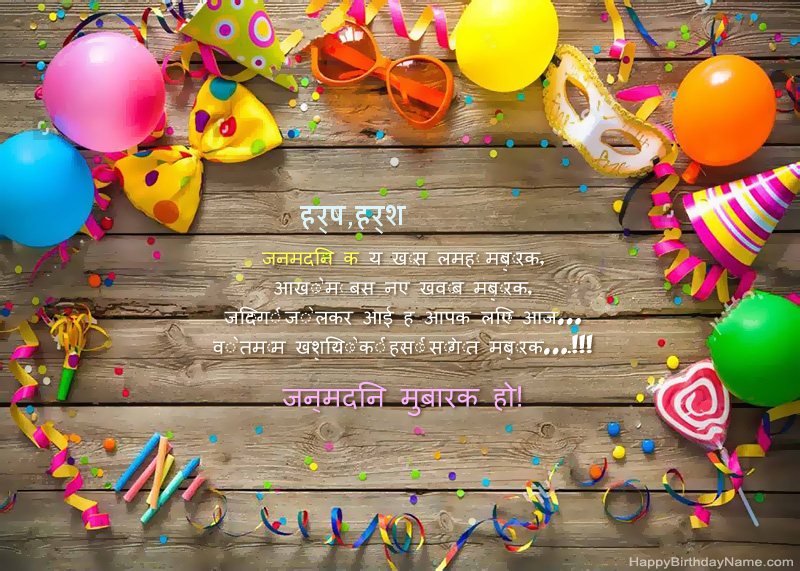 हर्ष,हर्श
जनमदिन क य ख़ास लमहा मबारक,
आखो में बस नए ख़वाब मबारक,
जिंदगी जो लेकर आई ह आपक लिए आज...
वो तमाम खुशियो की हसी सौगात मबारक...!!!
जन्मदिन मुबारक हो!
HappyBirthdayName.com